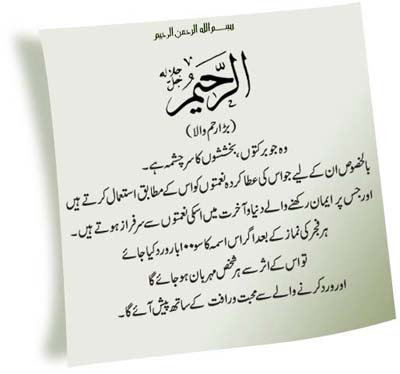 بسم الله الرحمن الرحيم
الرَّحِيمُ جل جلالہ
(بڑا رحم والا)
وہ جو برکتوں، بخششوں کا سرچشمہ ہے۔
بالخصوص ان کے لیے جو اس کی عطا کردہ نعمتوں کو اس کے مطابق استعمال کرتے ہیں
اور جس پر ایمان رکھنے والے دنیا و آخرت میں اسکی نعمتوں سے سرفراز ہوتے ہیں۔
ہر فجر کی نماز کے بعد اگر اس اسمہ کا سو ۱۰۰ بار ورد کیا جائے
تو اس کے اثر سے ہر شخص مہربان ہو جائے گا
اور ورد کرنے والے سے محبت و رافت کے ساتھ پیش آئے گا۔